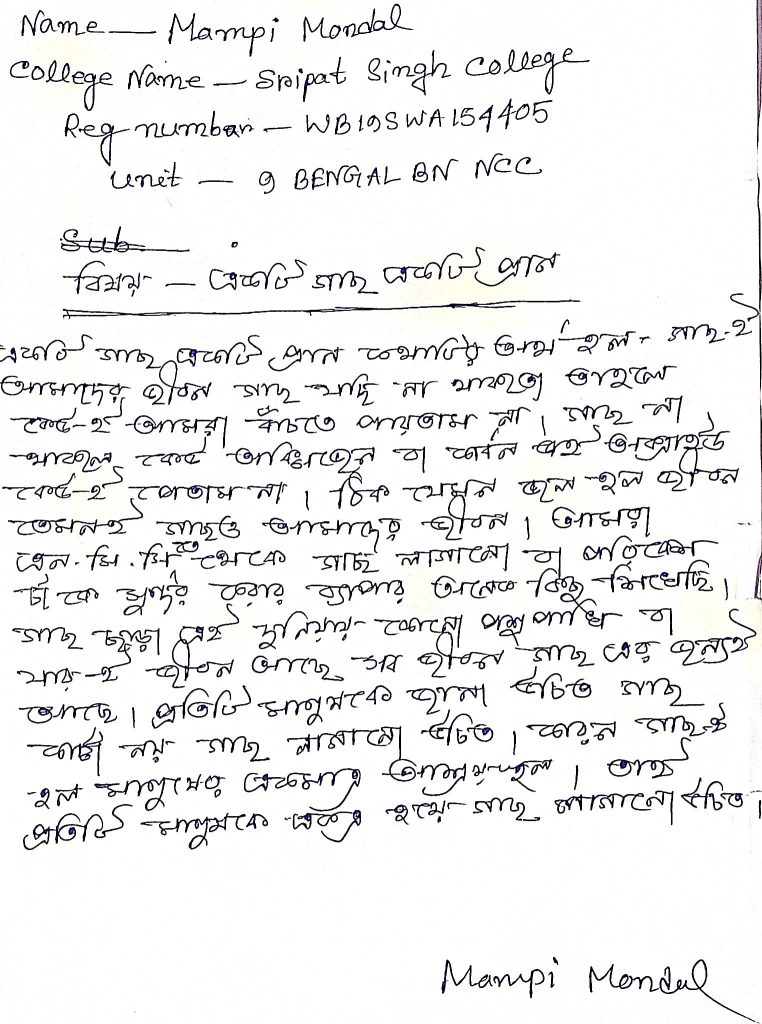 Name — Mampi Mondal
College Name — Sripat Singh College
Reg number — WB19SWA154405
Unit — 9 BENGAL BN NCC
Sub
বিষয় — একটি গাছ একটি প্রান
একটি গাছ একটি প্রান কথাটির অর্থ হল - গাছ-ই
আমাদের জীবন গাছ যদি না থাকত তাহলে
কেউ-ই আমরা বাঁচতে পারতাম না। গাছ না
থাকলে কেউ অক্সিজেন বা কার্বন ডাই অক্সাইড
কেউ-ই পেতাম না। ঠিক যেমন জল হল জীবন
তেমন-ই গাছও আমাদের জীবন। আমরা
এন.সি.সি তে থেকে গাছ লাগানো বা পরিবেশ
টা কে সুন্দর করার ব্যাপার অনেক কিছু শিখেছি।
গাছ ছাড়া এই দুনিয়ায় কোনো পশু পাখি বা
যার-ই জীবন আছে সব জীবন গাছ এর জন্যই
আছে। প্রতিটি মানুষকে জানা উচিত গাছ
কাটা নয় গাছ লাগানো উচিত। কারন গাছ-ই
হল মানুষের একমাত্র আশ্রয় স্থল। তাই
প্রতিটি মানুষকে একত্র হয়ে গাছ লাগানো উচিত।
Mampi Mondal